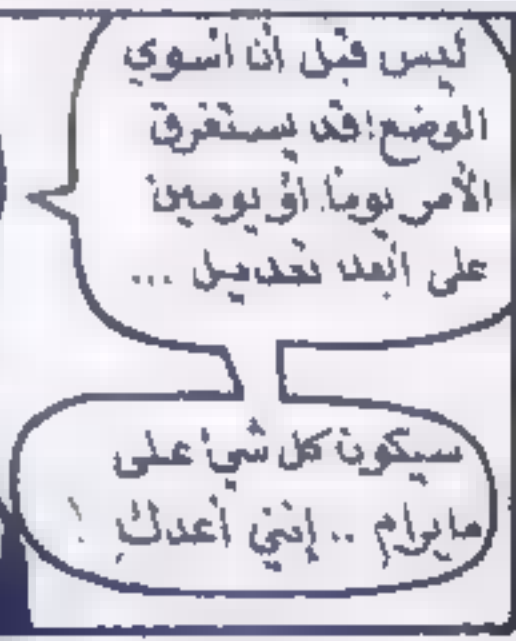 ليس قبل أن أسوي
الوضع! قد يستغرق
الأمر يوماً أو يومين
على أبعد تعديل ...
سيكون كل شيء على
مايرام .. إنني أعدك !